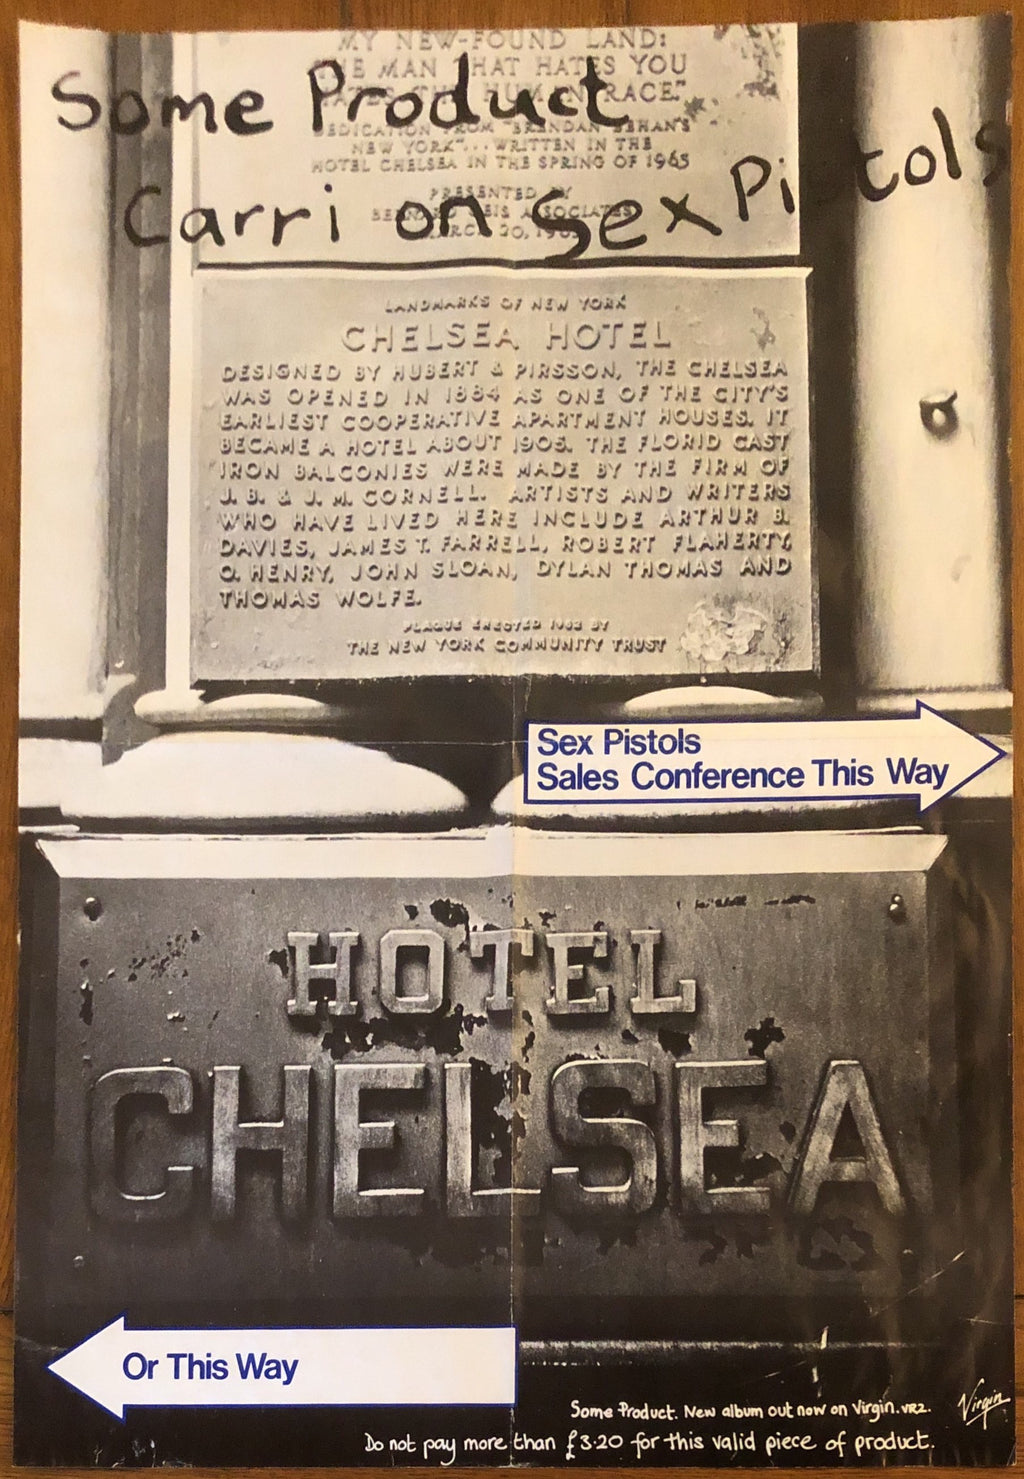 MY NEW-FOUND LAND:
THE MAN THAT HATES YOU
HATES THE HUMAN RACE."
Some Product
DEDICATION FROM "BRENDAN BEHAN'S
NEW YORK"... WRITTEN IN THE
HOTEL CHELSEA IN THE SPRING OF 1965
PRESENTED BY
BERNARD GEIS ASSOCIATES
MARCH 20,
Carri on Sex Pistols
LANDMARKS OF NEW YORK
CHELSEA HOTEL
DESIGNED BY HUBERT & PIRSSON, THE CHELSEA
WAS OPENED IN 1884 AS ONE OF THE CITY'S
EARLIEST COOPERATIVE APARTMENT HOUSES. IT
BECAME A HOTEL ABOUT 1905. THE FLORID CAST
IRON BALCONIES WERE MADE BY THE FIRM OF
J. B. & J. M. CORNELL. ARTISTS AND WRITERS
WHO HAVE LIVED HERE INCLUDE ARTHUR B.
DAVIES, JAMES T. FARRELL, ROBERT FLAHERTY,
O. HENRY, JOHN SLOAN, DYLAN THOMAS AND
THOMAS WOLFE.
PLAQUE ERECTED 1962 BY
THE NEW YORK COMMUNITY TRUST
Sex Pistols
Sales Conference This Way
HOTEL
CHELSEA
Or This Way
Some Product. New album out now on Virgin. VR2.
Virgin
Do not pay more than £3·20 for this valid piece of product.